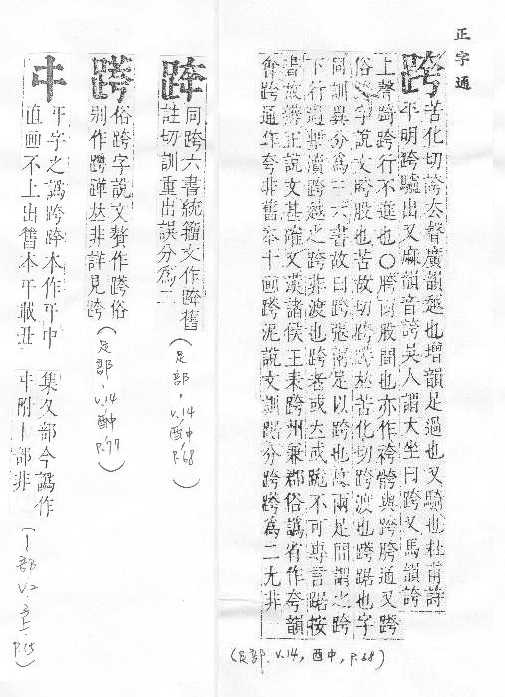 正字通
跨
苦化切誇去聲廣韻越也增韻足過也又騎也杜甫詩
平明跨驢出又麻韻音誇吳人謂大坐曰跨又馬韻誇
上聲踦跨行不進也○胯曰股間也亦作袴骻與跨胯通又跨
俗字說文跨股也苦故切跨苦化切跨渡也跨踞也字
同訓異分為三六書故曰跨張兩足以跨也故兩足間謂之跨
下行跨越之跨非渡也跨者或大或跪不可專言踞按
書故辨正說文甚確又漢諸侯王表跨州兼郡俗譌省作夸韻
會跨通作夸非舊本十畫跨泥說文訓踞分跨跨為二尤非
(足部,v.14,酉中,P.68)
同跨六書統籀文作舊
註切訓重出誤分為二
(足部,v.14酉中,P.68)
俗跨字說文贅作跨俗
別作𠀤非詳見跨
(足部,v.14酉中P.77)
㐄
㐄字之譌跨本作㐄中
直畫不上出舊本㐄載丑
集夂部今譌作
附丨部非
(丨部 v.2 子上 P.15)